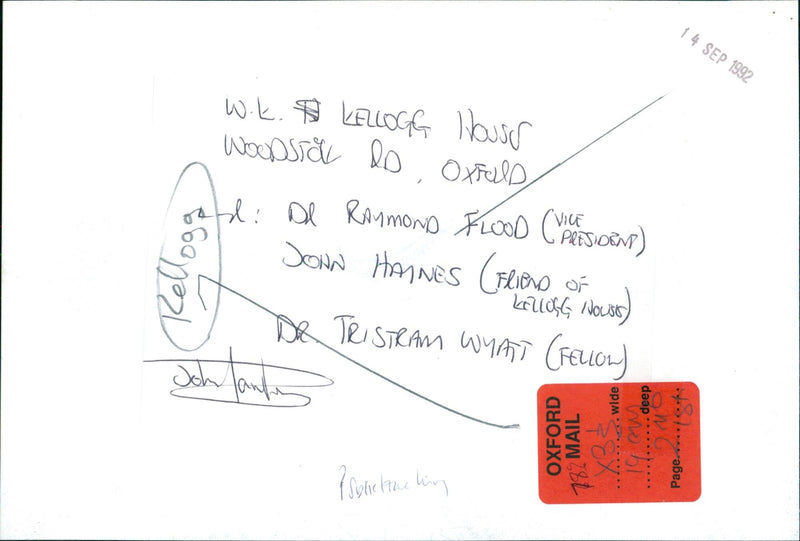 14 SEP 1992
W.K. KELLOGG HOUSE
WOODSTOCK RD, OXFORD
Kellogg
DR RAYMOND FLOOD (VICE PRESIDENT)
JOHN HAINES (FRIEND OF
KELLOGG HOUSE)
DR. TRISTRAM WYATT (FELLOW)
John
OXFORD
MAIL
wide
deep
Page